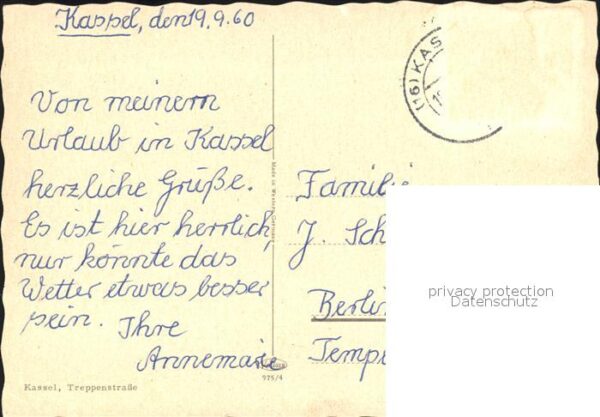 Kassel, den 19.9.60
Von meinem
Urlaub in Kassel
herzliche Grüße.
Es ist hier herrlich,
nur könnte das
Wetter etwas besser
sein. Ihre
Annemarie
Kassel, Treppenstraße
975/4
(16) KAS
Familie
J. Sch
Berlin
Temp
privacy protection
Datenschutz